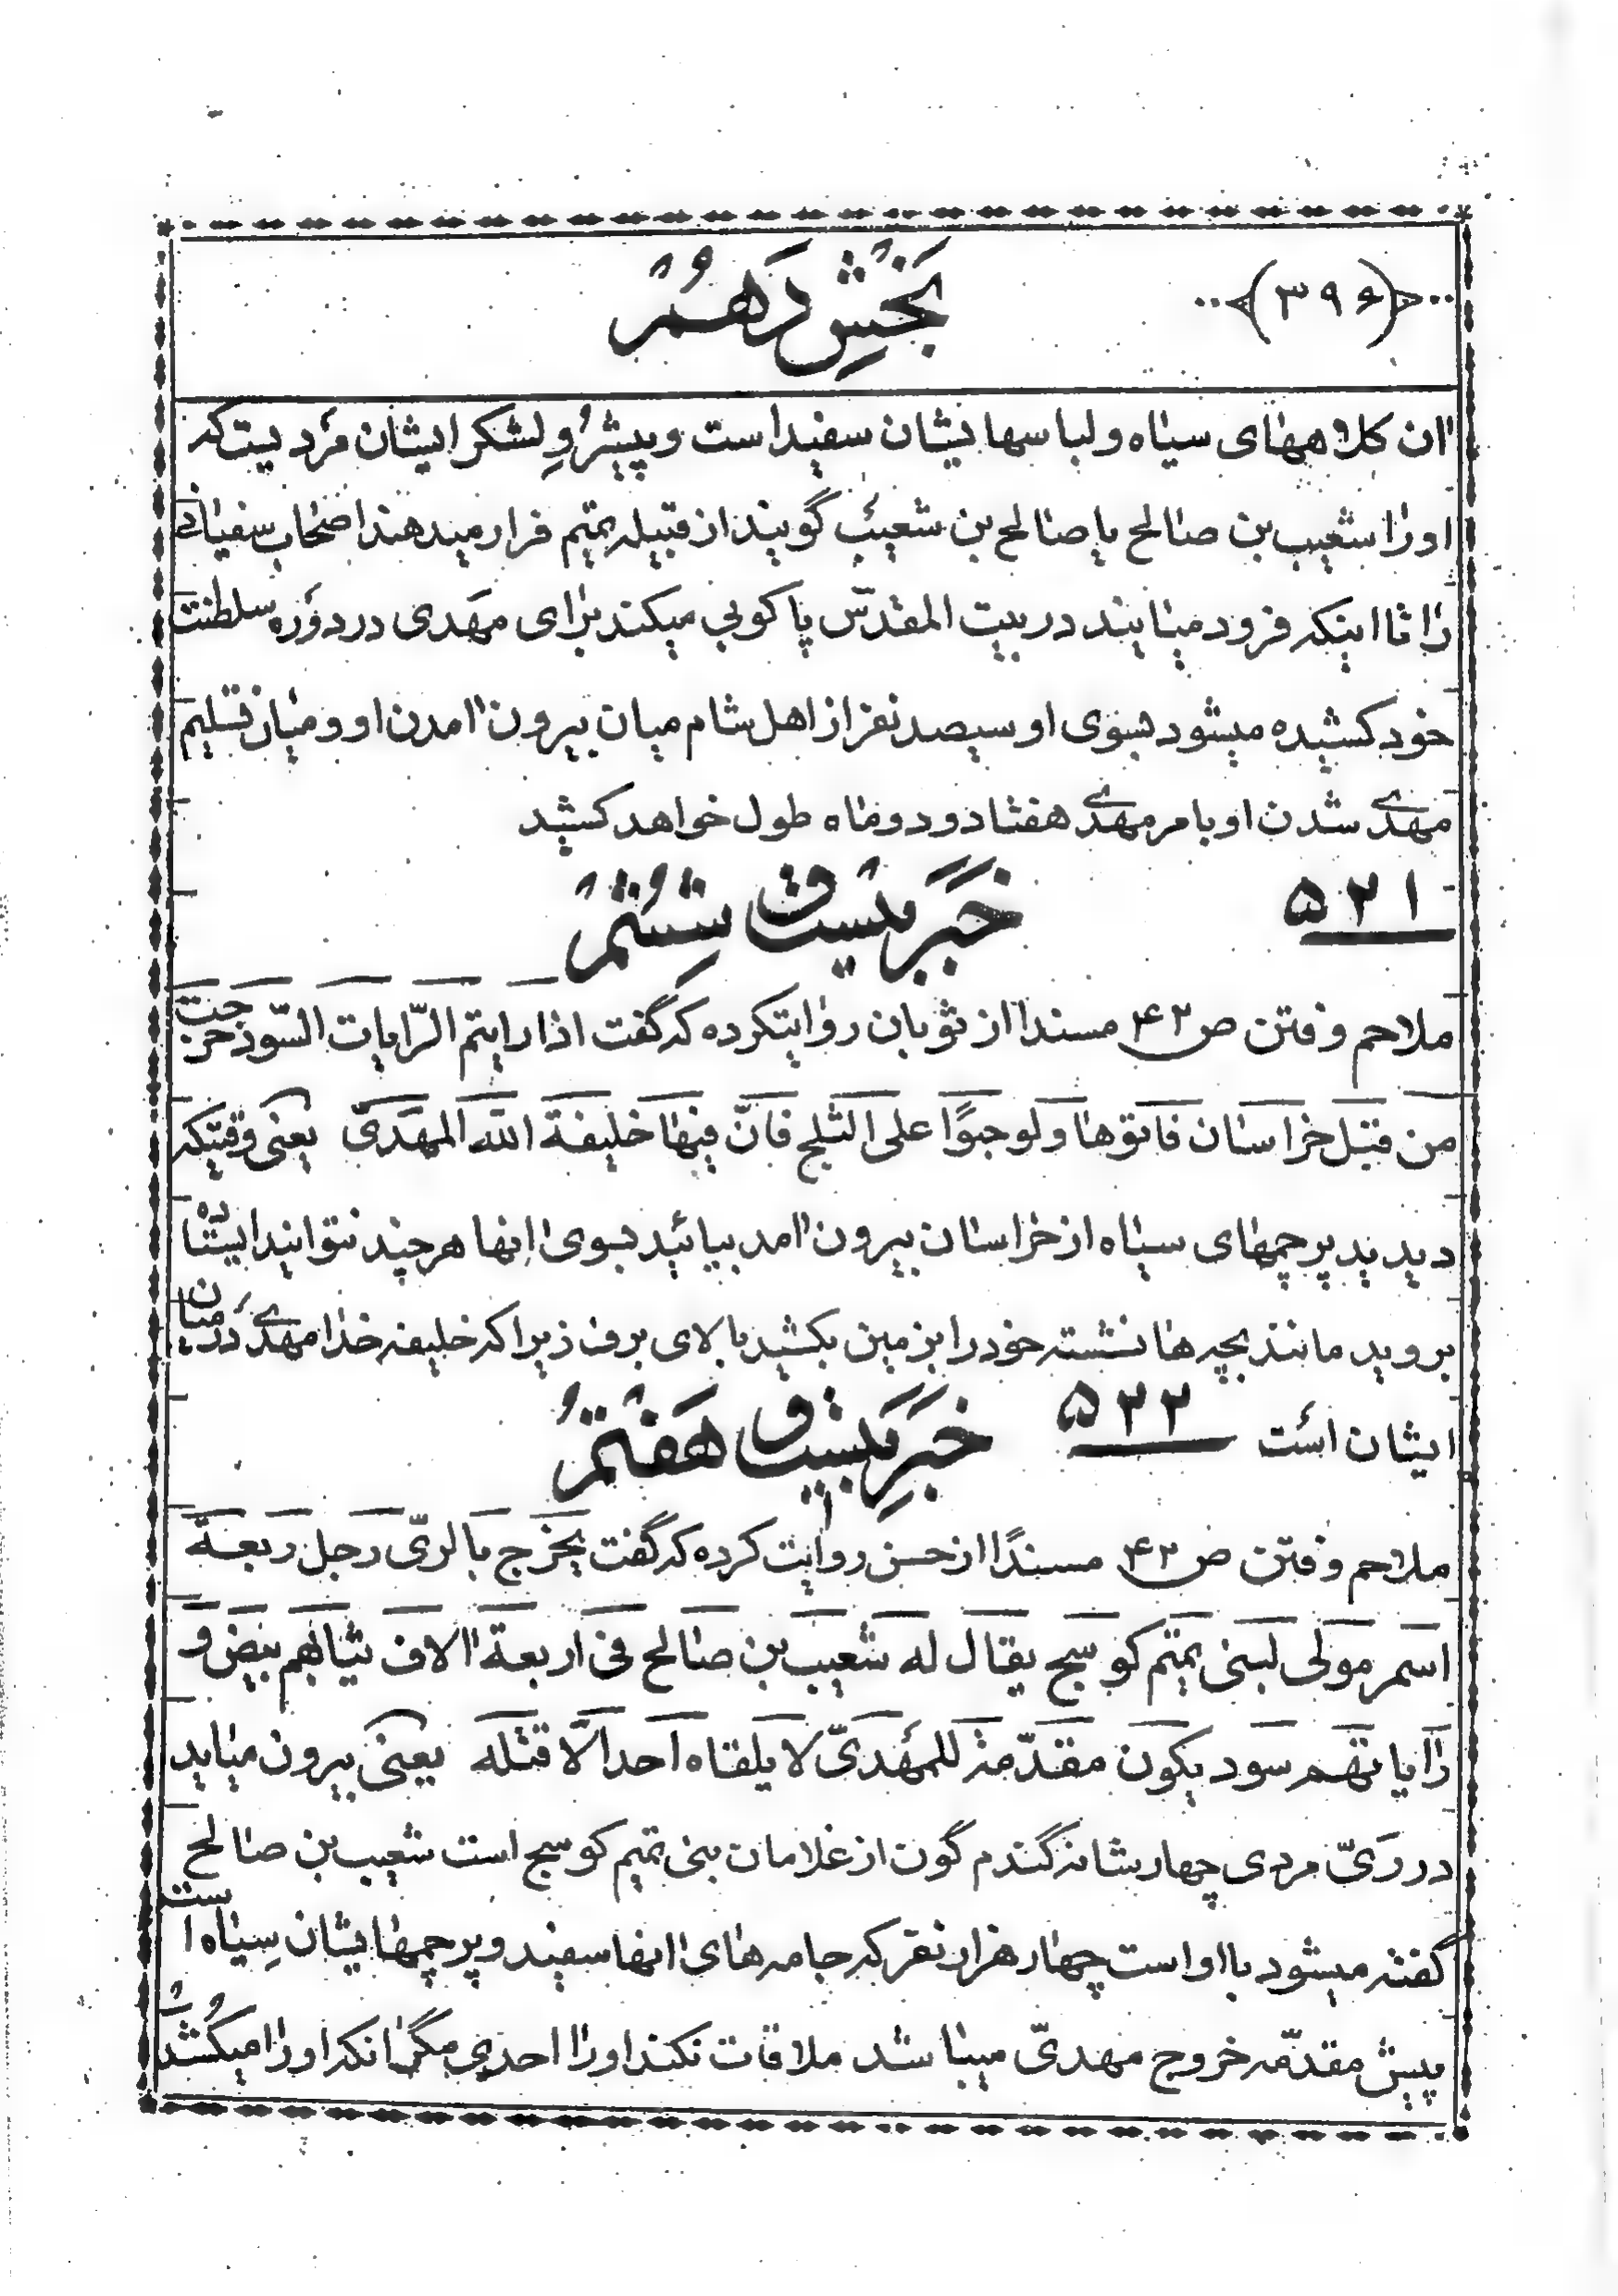 (۳۹۶) بخش دهم
آن کلاههای سیاه و لباسهایشان سفید است و پیشرو لشکر ایشان مردیست که
او را شعیب بن صالح یا صالح بن شعیب گویند از قبیله تمیم فرار میدهند اصحاب سفیانی
را تا اینکه فرود میایند در بیت المقدس پا کوبی میکند برای مهدی در دوره سلطنت
خود کشیده میشود بسوی او سیصد نفر از اهل شام میان بیرون آمدن او و میان تسلیم
مهدی شدن او بامر مهدی هفتاد و دو ماه طول خواهد کشید
۵۲۱ خبر بیست و ششم
ملاحم و فتن ص ۴۲ مسندا از ثوبان روایتکرده که گفت اذا رایتم الرّایات السّود خرجت
من قبل خراسان فاتوها ولو حبوًا علی الثلج فانّ فیها خلیفة الله المهدیّ یعنی وقتیکه
دیدید پرچمهای سیاه از خراسان بیرون آمد بیائید بسوی آنها هر چند نتوانید ایستاده
بروید مانند بچه ها نشسته خود را بزمین بکشید بالای برف زیرا که خلیفه خدا مهدی در میان
ایشان است ۵۲۲ خبر بیست و هفتم
ملاحم و فتن ص ۴۲ مسندًا از حسن روایت کرده که گفت یخرج بالریّ رجل ربعة
اسمر مولی لبنی تمیم کوسج یقال له شعیب بن صالح فی اربعة آلاف ثیابهم بیض و
رایاتهم سود یکون مقدّمة للمهدیّ لا یلقاه احد الّا قتله یعنی بیرون میاید
در ریّ مردی چهارشانه گندم گون از غلامان بنی تمیم کوسج است شعیب بن صالح
گفته میشود با او است چهار هزار نفر که جامه های آنها سفید و پرچمهایشان سیاه است
پیش مقدّمه خروج مهدیّ میباشد ملاقات نکند او را احدی مگر آنکه او را میکُشد